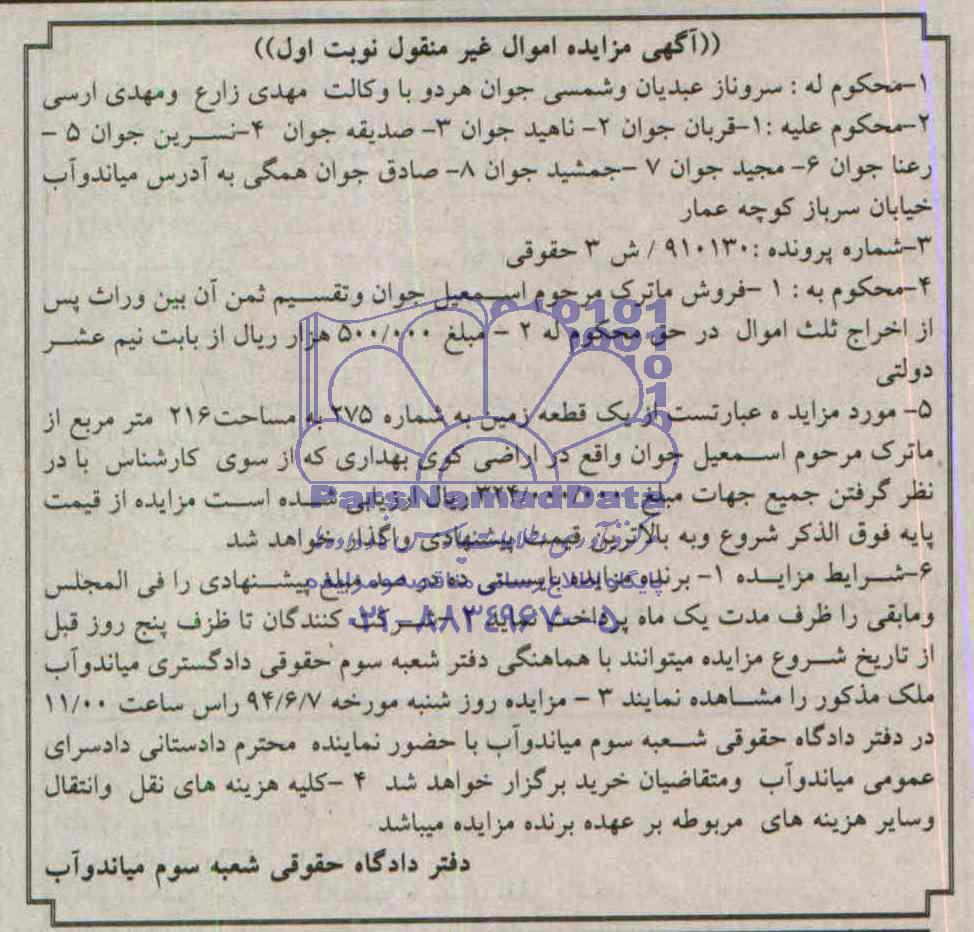 ((آگهی مزایده اموال غیر منقول نوبت اول))
۱-محکوم له : سروناز عبدیان وشمسی جوان هردو با وکالت مهدی زارع ومهدی ارسی
۲-محکوم علیه :۱-قربان جوان ۲- ناهید جوان ۳- صدیقه جوان ۴-نسرین جوان ۵ -
رعنا جوان ۶- مجید جوان ۷ -جمشید جوان ۸- صادق جوان همگی به آدرس میاندوآب
خیابان سرباز کوچه عمار
۳-شماره پرونده :۹۱۰۱۳۰ / ش ۳ حقوقی
۴-محکوم به : ۱ -فروش ماترک مرحوم اسمعیل جوان وتقسیم ثمن آن بین وراث پس
از اخراج ثلث اموال در حق محکوم له ۲ - مبلغ ۵۰۰/۰۰۰ هزار ریال از بابت نیم عشر
دولتی
۵- مورد مزاید ه عبارتست از یک قطعه زمین به شماره ۲۷۵ به مساحت۲۱۶ متر مربع از
ماترک مرحوم اسمعیل جوان واقع در اراضی کوی بهداری که از سوی کارشناس با در
نظر گرفتن جمیع جهات مبلغ ۳۲۴/۰۰۰/۰۰۰ ریال ارزیابی شده است مزایده از قیمت
پایه فوق الذکر شروع وبه بالاترین قیمت پیشنهادی واگذار خواهد شد
۶-شرایط مزایده ۱- برنده مزایده بایستی ده در صد مبلغ پیشنهادی را فی المجلس
ومابقی را ظرف مدت یک ماه پرداخت نماید ۲-شرکت کنندگان تا ظرف پنج روز قبل
از تاریخ شروع مزایده میتوانند با هماهنگی دفتر شعبه سوم حقوقی دادگستری میاندوآب
ملک مذکور را مشاهده نمایند ۳ - مزایده روز شنبه مورخه ۹۴/۶/۷ راس ساعت ۱۱/۰۰
در دفتر دادگاه حقوقی شعبه سوم میاندوآب با حضور نماینده محترم دادستانی دادسرای
عمومی میاندوآب ومتقاضیان خرید برگزار خواهد شد ۴ -کلیه هزینه های نقل وانتقال
وسایر هزینه های مربوطه بر عهده برنده مزایده میباشد
دفتر دادگاه حقوقی شعبه سوم میاندوآب
ParsNamadData
۰۲۱-۸۸۳۴۹۶۷۰-۵